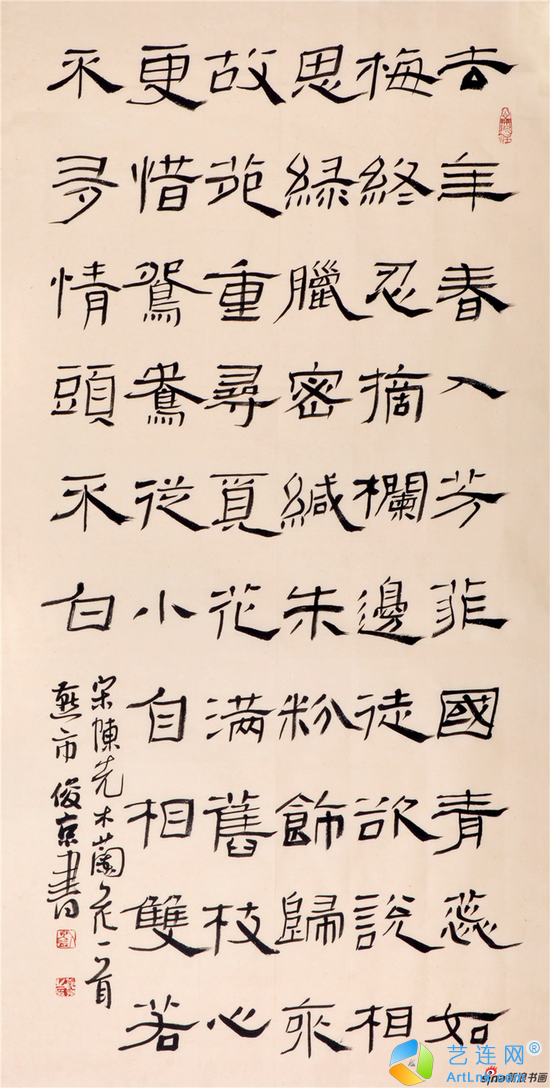 去年春入芳菲國青蕊如
梅終忍摘欄邊徒欲說相
思綠臘密緘朱粉飾歸來
故苑重尋覓花滿舊枝心
更惜鴛鴦從小自相雙若
不多情頭不白
宋陳先木蘭花一首
燕市俊京書
艺连网®
sina新浪书画